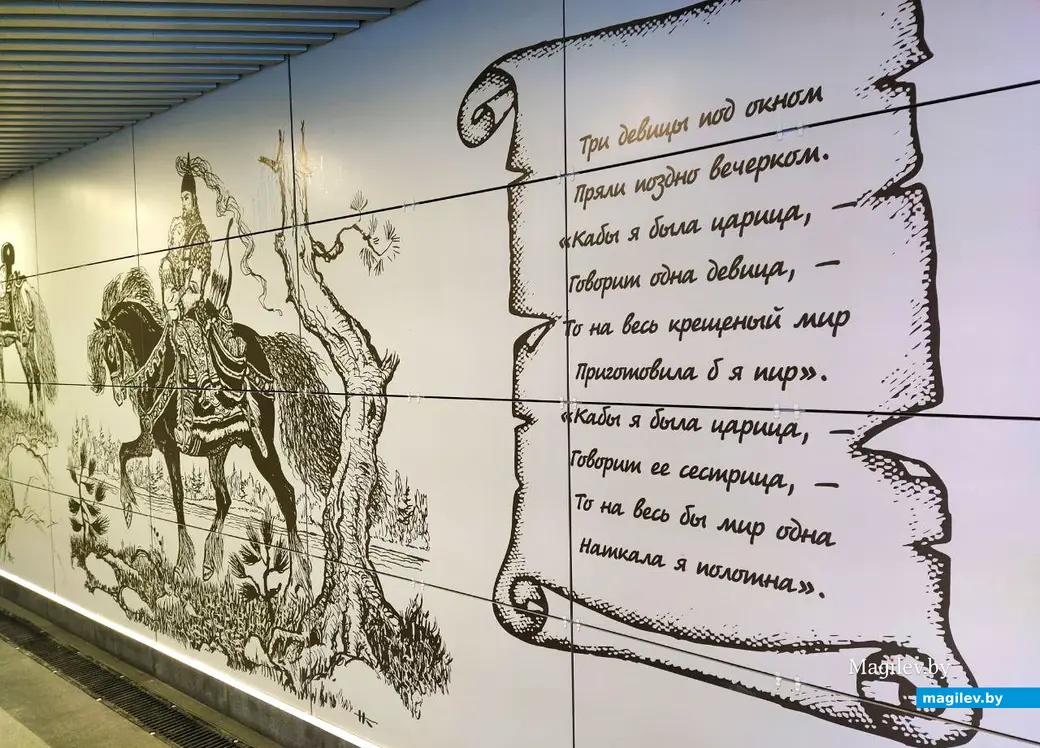 Три девицы под окном
Пряли поздно вечерком.
«Кабы я была царица, —
Говорит одна девица, —
То на весь крещеный мир
Приготовила б я пир».
«Кабы я была царица, —
Говорит ее сестрица, —
То на весь бы мир одна
Наткала я полотна».
Magilev.by
magilev.by